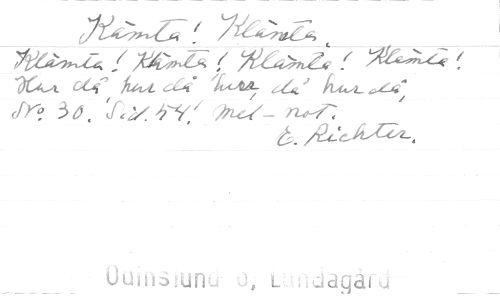 Kämta! Klämta.
Klämta! Klämta! Klämta! Klämta!
Hur då, hur då hur, då hur då,
No 30. Sid. 54. Mel-not.
E. Richter.
Odinslund o, Lundagård